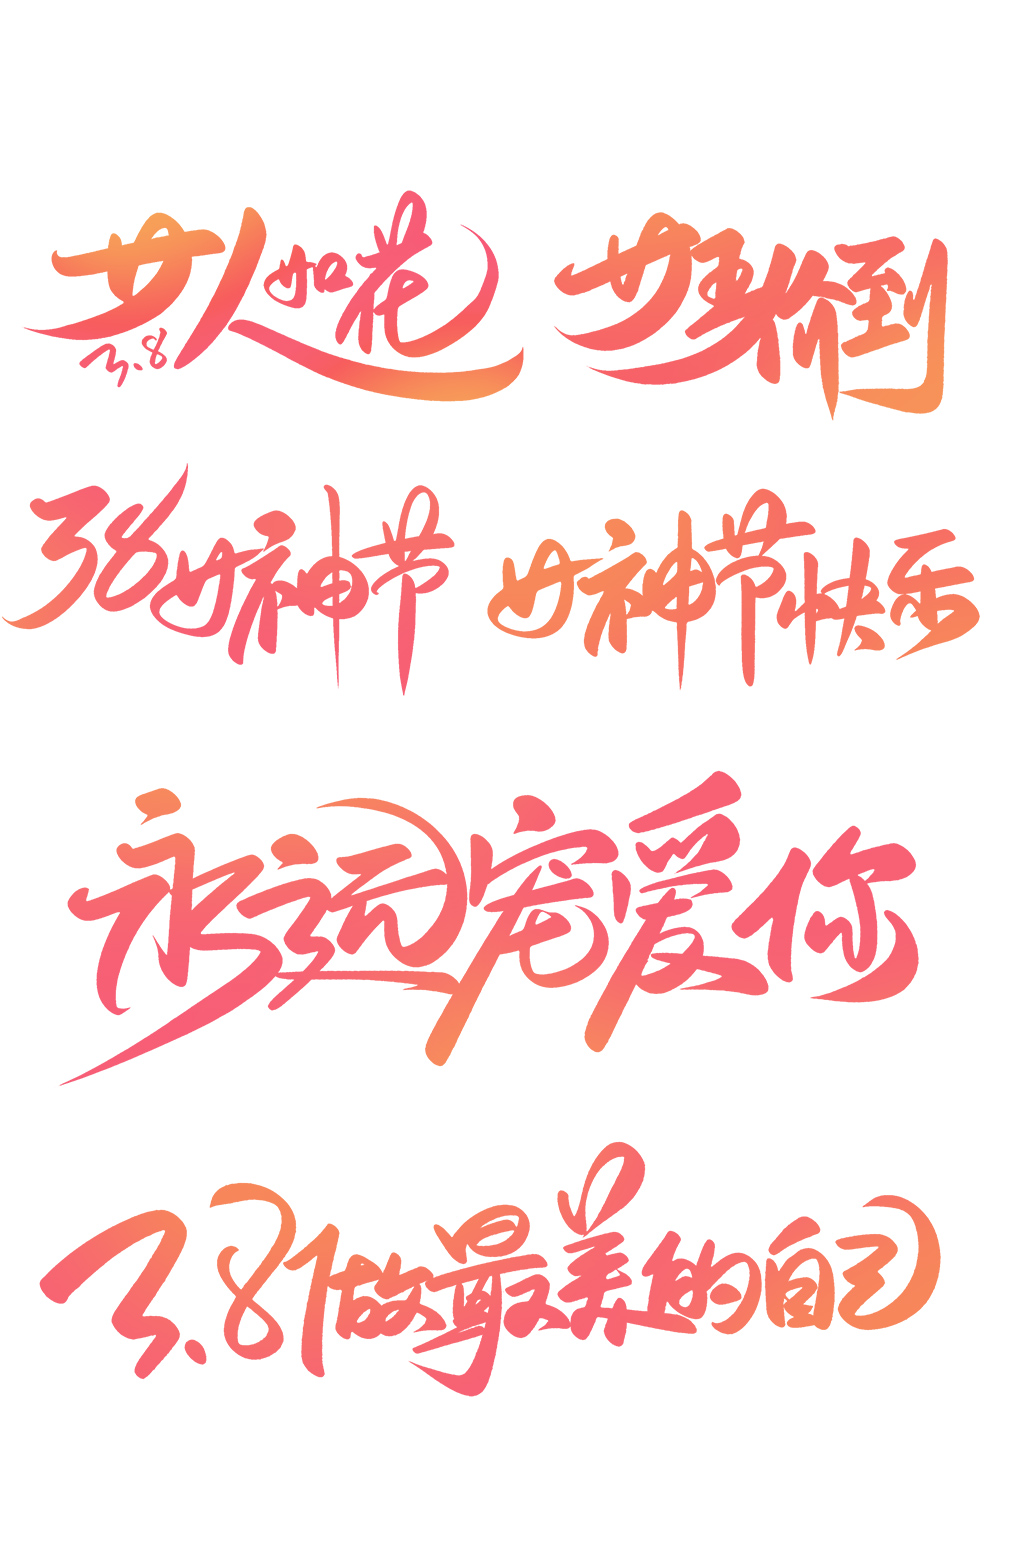 女人如花
3.8
女王价到
38女神节
女神节快乐
永远宠爱你
3.8做最美的自己